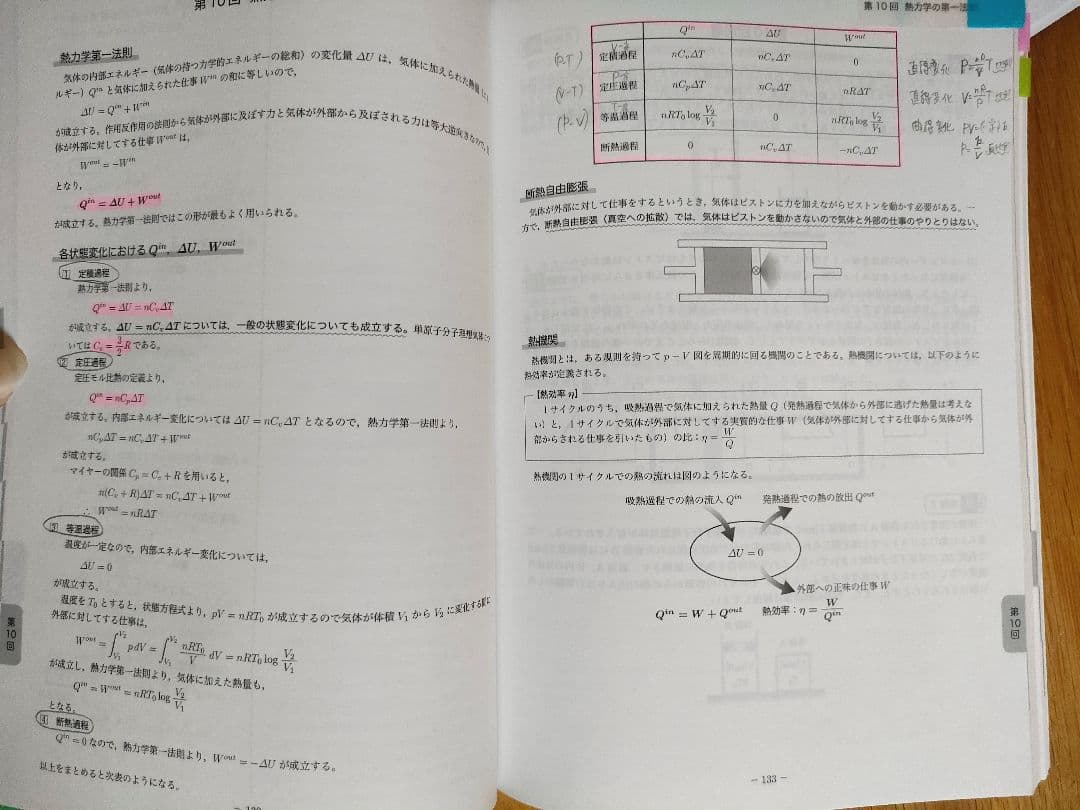 第10回
熱力学第一法則
気体の内部エネルギー(気体の持つ力学的エネルギーの総和)の変化量 ΔU は,気体に加えられた熱量
ルギー) Qⁱⁿ と気体に加えられた仕事 Wⁱⁿ の和に等しいので,
ΔU = Qⁱⁿ + Wⁱⁿ
が成立する。作用反作用の法則から気体が外部に及ぼす力と気体が外部から及ぼされる力は等大逆向きなので,
体が外部に対してする仕事 Wᵒᵘᵗ は,
Wᵒᵘᵗ = −Wⁱⁿ
となり,
Qⁱⁿ = ΔU + Wᵒᵘᵗ
が成立する。熱力学第一法則ではこの形が最もよく用いられる。
各状態変化における Qⁱⁿ, ΔU, Wᵒᵘᵗ
1 定積過程
熱力学第一法則より,
Qⁱⁿ = ΔU = nCᵥΔT
が成立する。ΔU = nCᵥΔT については,一般の状態変化についても成立する。単原子分子理想気体に
いては Cᵥ = 3/2 R である。
2 定圧過程
定圧モル比熱の定義より,
Qⁱⁿ = nCₚΔT
が成立する。内部エネルギー変化については ΔU = nCᵥΔT となるので,熱力学第一法則より,
nCₚΔT = nCᵥΔT + Wᵒᵘᵗ
が成立する。
マイヤーの関係 Cₚ = Cᵥ + R を用いると,
n(Cᵥ + R)ΔT = nCᵥΔT + Wᵒᵘᵗ
∴ Wᵒᵘᵗ = nRΔT
3 等温過程
温度が一定なので,内部エネルギー変化については,
ΔU = 0
が成立する。
温度を T₀ とすると,状態方程式より,pV = nRT₀ が成立するので気体が体積 V₁ から V₂ に変化する際に
外部に対してする仕事は,
Wᵒᵘᵗ = ∫_{V₁}^{V₂} pdV = ∫_{V₁}^{V₂} nRT₀/V dV = nRT₀ log V₂/V₁
が成立し,熱力学第一法則より,気体に加えた熱量も,
Qⁱⁿ = Wᵒᵘᵗ = nRT₀ log V₂/V₁
となる。
4 断熱過程
Qⁱⁿ = 0 なので,熱力学第一法則より,Wᵒᵘᵗ = −ΔU が成立する。
以上をまとめると次表のようになる。
第10回
第10回 熱力学の第一法
Qⁱⁿ ΔU Wᵒᵘᵗ
(P,T) 定積過程 nCᵥΔT nCᵥΔT 0 直線変化 P=nR/V T
(V-T) 定圧過程 nCₚΔT nCᵥΔT nRΔT 直線変化 V=nR/P T
(P-V) 等温過程 nRT₀ log V₂/V₁ 0 nRT₀ log V₂/V₁ 曲線変化 PV=
断熱過程 0 nCᵥΔT −nCᵥΔT
断熱自由膨張
気体が外部に対して仕事をするというとき,気体はピストンに力を加えながらピストンを動かす必要がある。一
方で,断熱自由膨張(真空への拡散)では,気体はピストンを動かさないので気体と外部の仕事のやりとりはない。
熱機関
熱機関とは,ある規則を持って p − V 図を周期的に回る機関のことである。熱機関については,以下のように
熱効率が定義される。
【熱効率 η】
1サイクルのうち,吸熱過程で気体に加えられた熱量 Q (発熱過程で気体から外部に逃げた熱量は考えな
い)と,1サイクルで気体が外部に対してする実質的な仕事 W (気体が外部に対してする仕事から気体が外
部からされる仕事を引いたもの)の比:η = W/Q
熱機関の1サイクルでの熱の流れは図のようになる。
吸熱過程での熱の流入 Qⁱⁿ 発熱過程での熱の放出 Qᵒᵘᵗ
ΔU = 0
外部への正味の仕事 W
Qⁱⁿ = W + Qᵒᵘᵗ 熱効率:η = W/Qⁱⁿ
第10回
− 133 −